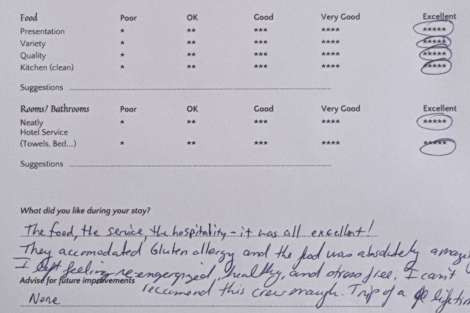 Food Poor OK Good Very Good Excellent
Presentation * ** *** **** *****
Variety * ** *** **** *****
Quality * ** *** **** *****
Kitchen (clean) * ** *** **** *****
Suggestions
Rooms/ Bathrooms Poor OK Good Very Good Excellent
Neatly * ** *** **** *****
Hotel Service
(Towels, Bed...) * ** *** **** *****
Suggestions
What did you like during your stay?
The food, the service, the hospitality - it was all excellent!
They accomodated Gluten allergy and the food was absolutely
I left feeling re-energized, healthy, and stress free, I can't
Advise for future improvements
recommend this crew enough. Trip of a lifetime
None